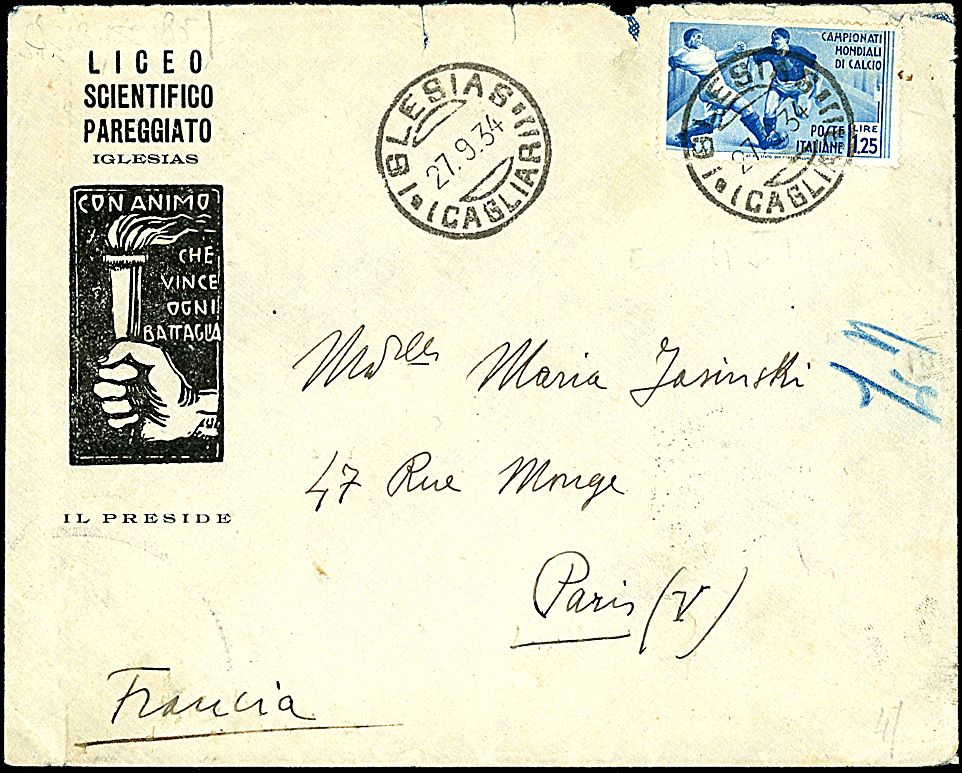 LICEO
SCIENTIFICO
PAREGGIATO
IGLESIAS
CON ANIMO
CHE
VINCE
OGNI
BATTAGLIA
IL PRESIDE
IGLESIAS
(CAGLIARI)
27.9.34
CAMPIONATI
MONDIALI
DI CALCIO
POSTE LIRE
ITALIANE 1.25
IGLESIAS
(CAGLIARI)
Mdlles Maria Jasinski
47 Rue Monge
Paris (V)
Francia